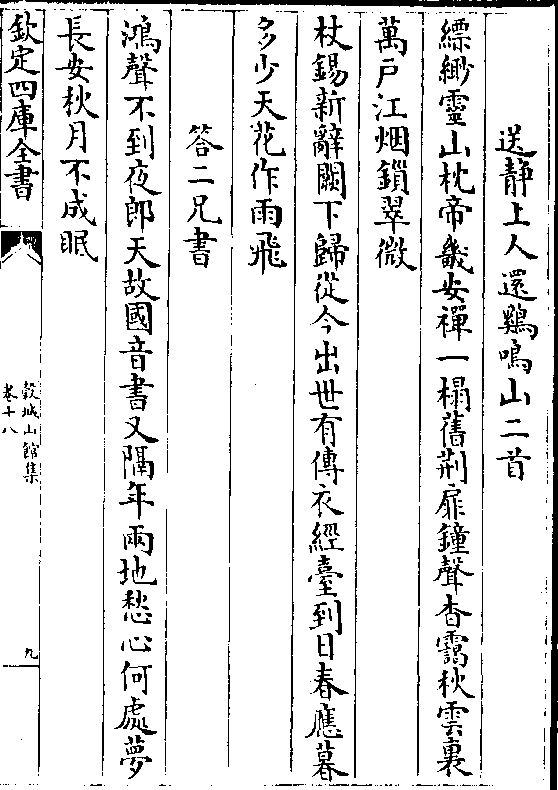 送静上人還鷄鳴山二首
縹緲靈山枕帝畿安禪一榻舊荆扉鐘聲杳靄秋雲裏
萬戸江烟鎖翠微
杖錫新辭闕下歸從今出世有傳衣經臺到日春應暮
多少天花作雨飛
答二兄書
鴻聲不到夜郎天故國音書又隔年兩地愁心何處夢
長安秋月不成眠
欽定四庫全書
榖城山館集
卷十八
九